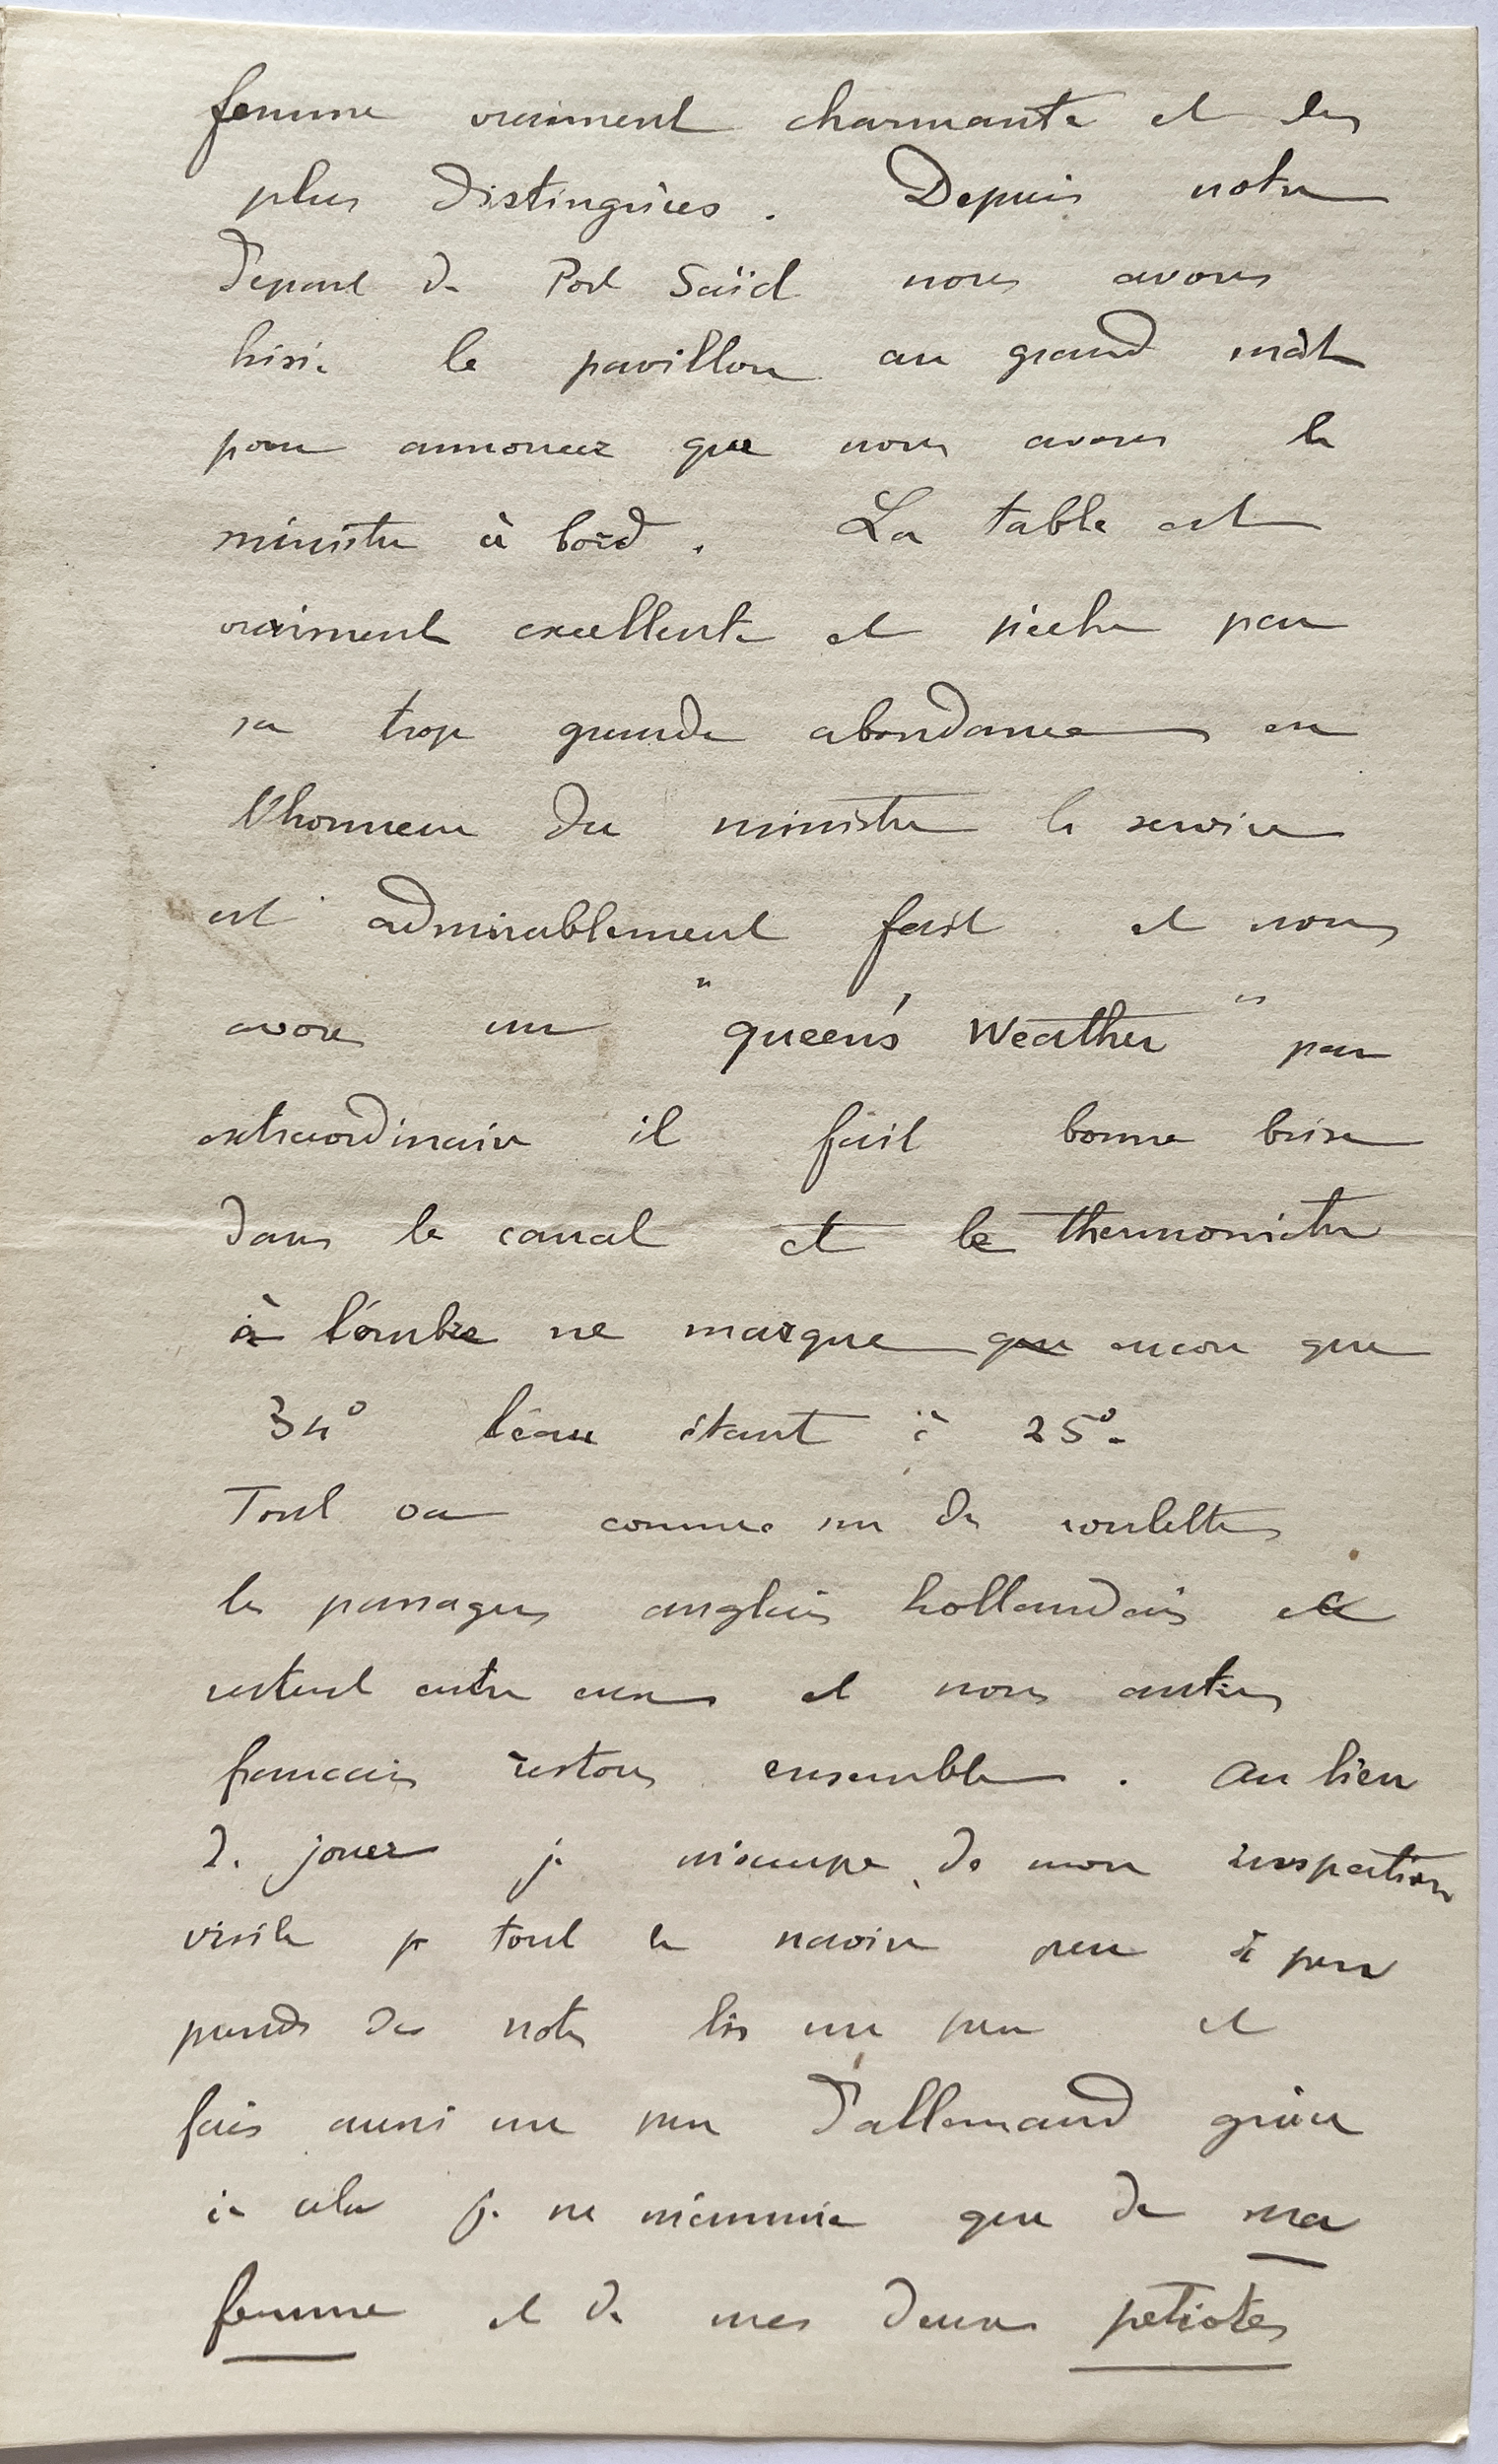 femme vraiment charmante et des
plus distinguées. Depuis notre
départ de Port Saïd nous avons
hissé le pavillon au grand mât
pour annoncer que nous avons le
ministre à bord. La table est
vraiment excellente et pèche par
sa trop grande abondance en
l'honneur du ministre le service
est admirablement fait et nous
avons un "queen's Weather" peu
extraordinaire il fait bonne brise
dans le canal et le thermomètre
à l'ombre ne marque que encore que
34° l'eau étant à 25°-
Tout va comme sur des roulettes
les passagers anglais hollandais etc
restent entre eux et nous autres
francais restons ensemble. Au lieu
de jouer je m'occupe de mon inspection
visite tout le navire peu à peu
prends des notes lis un peu et
fais aussi un peu d'allemand grâce
à cela je ne m'ennuie que de ma
femme et de mes deux petiotes